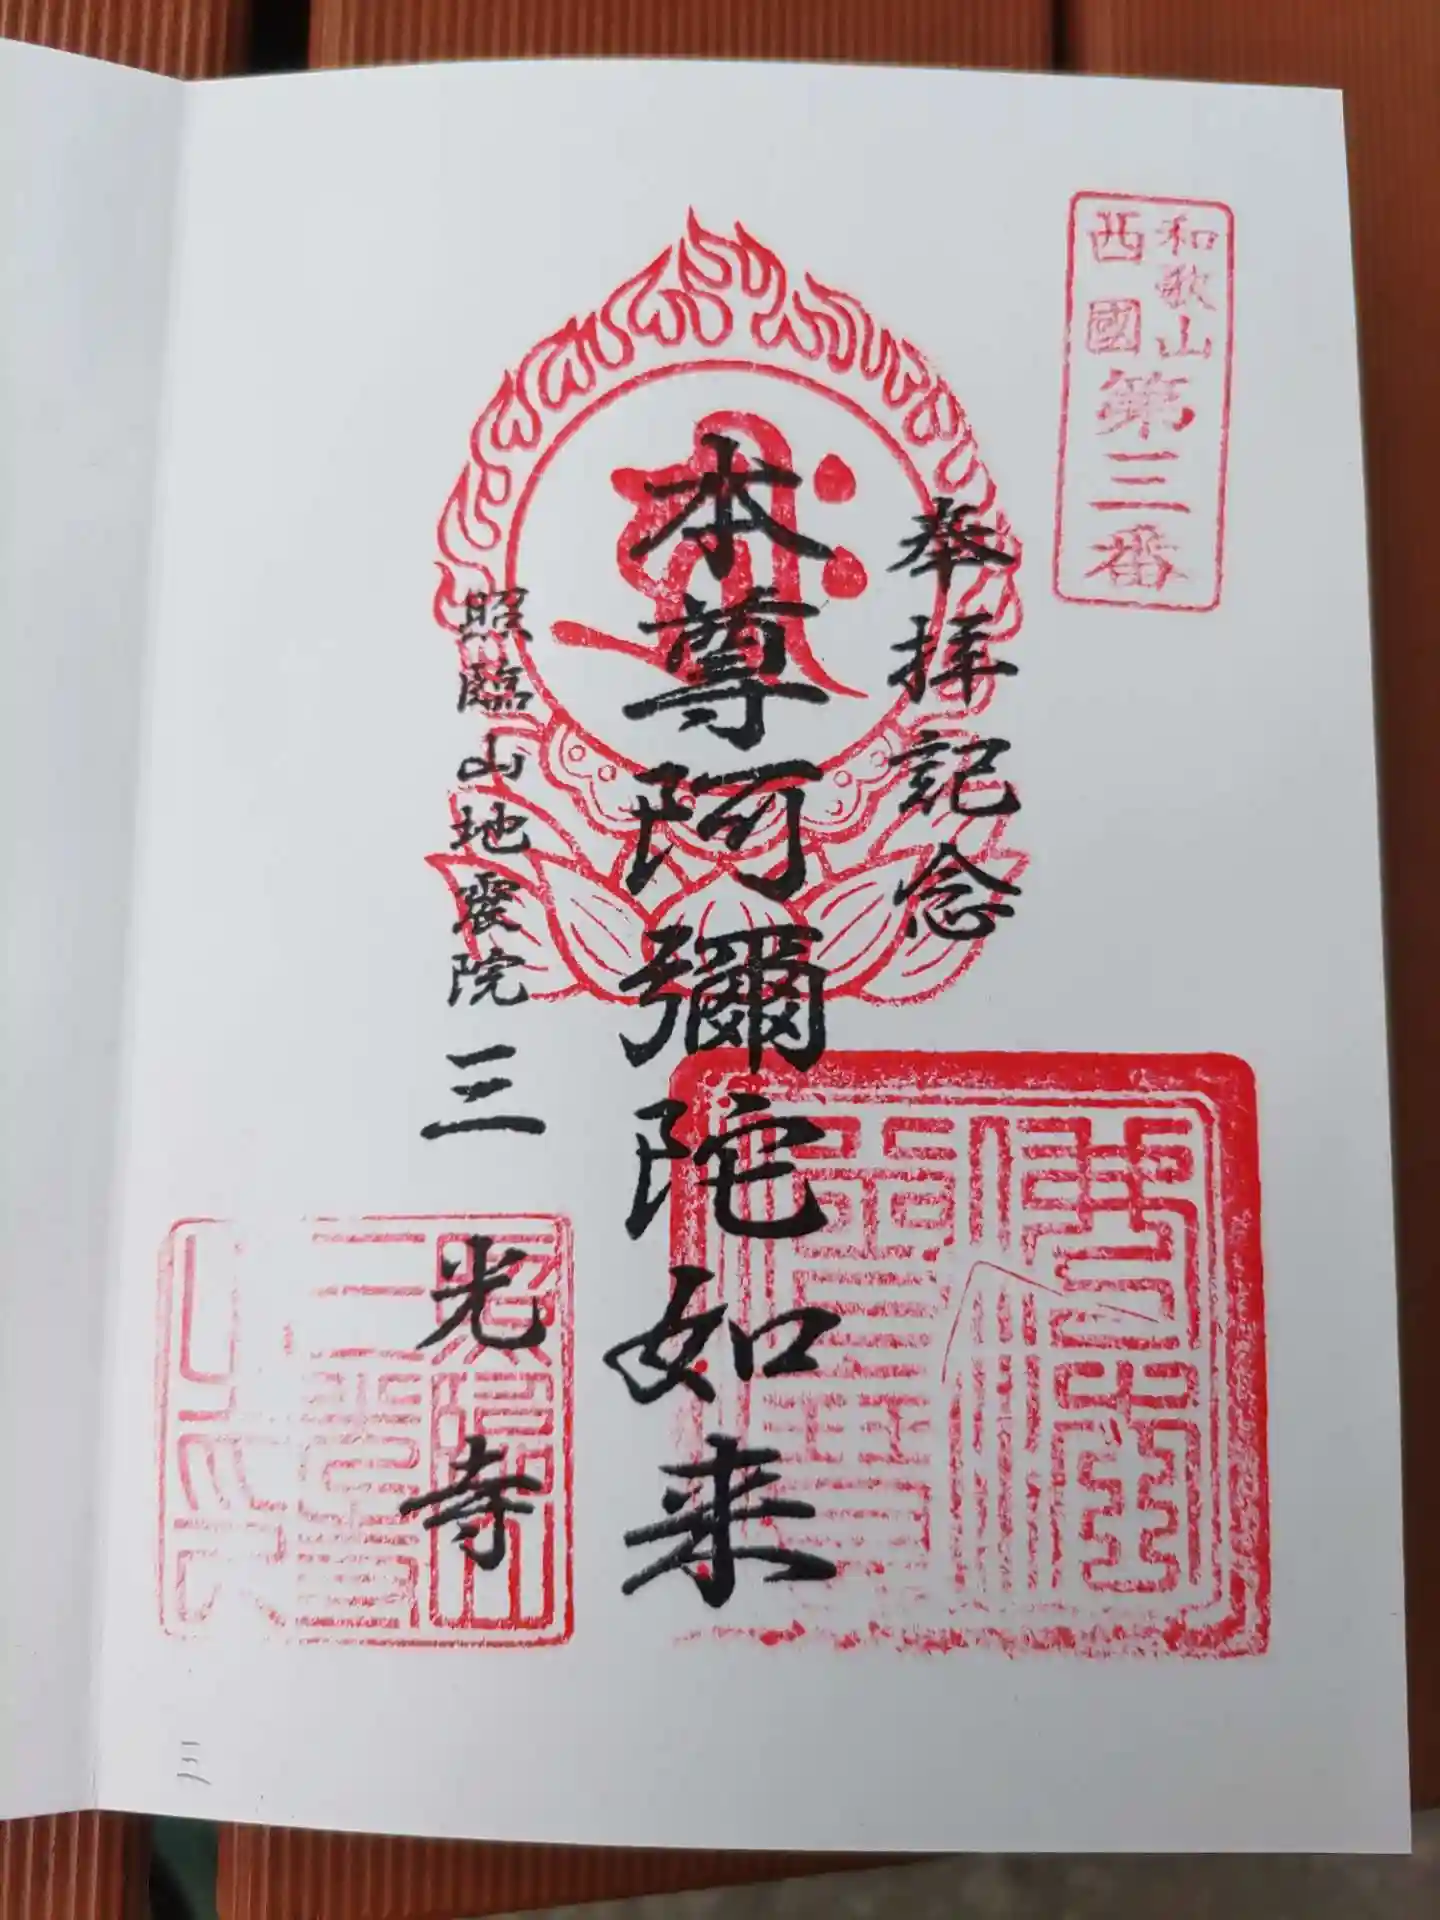 和歌山
西國
第三番
奉拝記念
本尊阿彌陀如来
照臨山地震院三光寺
三